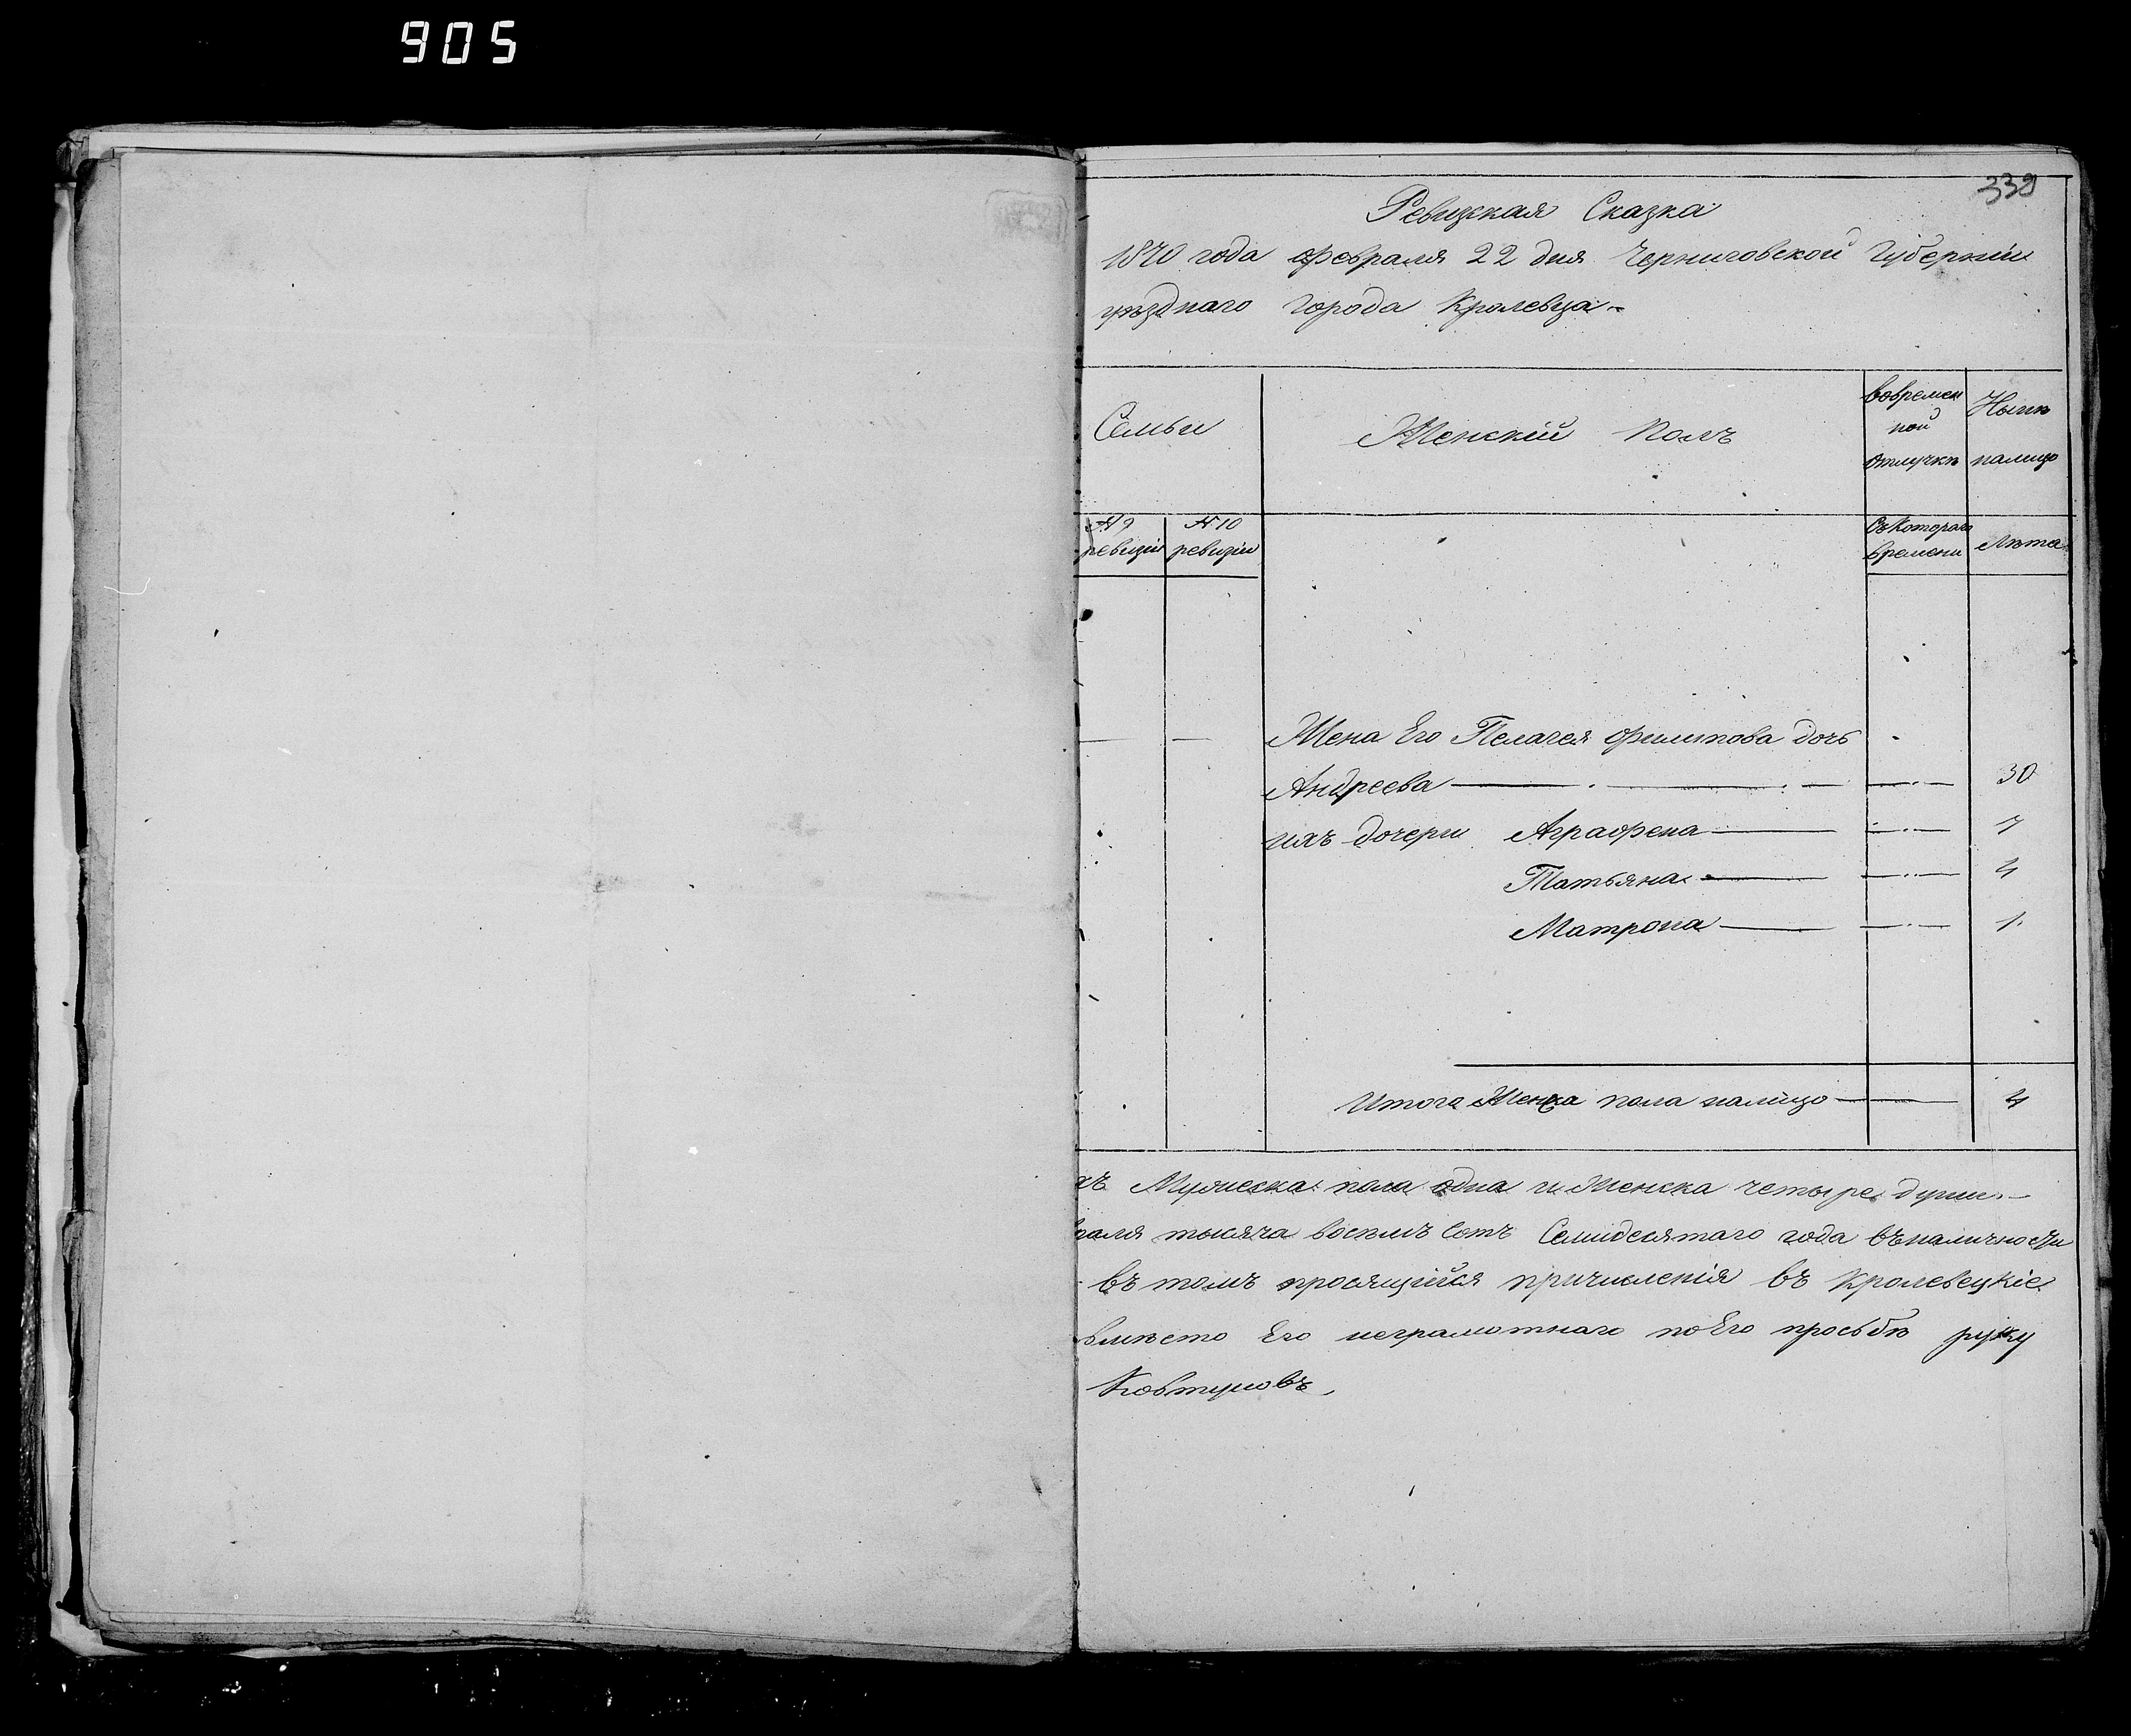 905
339
Ревизкая Сказка
1870 года февраля 22 дня Черниговской Губерніи
уѣзднаго города Кролевца
Семьи
Женскій Полъ
вовремен
ной
отлучкѣ
Нынѣ
налицо
№ 9
ревизіи
№ 10
ревизіи
Съкотораго
времени
Лѣта
Жена Его Пелагея Филипова дочь
Андреева 30
ихъ дочери Аграфена 7
Татьяна 4
Матрона 1
Итого Женска пола налицо 4
хъ Мужеска пола одна и Женска четыре души
раля тысяча восемъ сотъ Семидесятаго года въналичности
въ томъ просящійся причисленія въ Кролевецкіе
вмѣсто Его неграмотнаго поЕго просьбѣ руку
Ковтуновъ